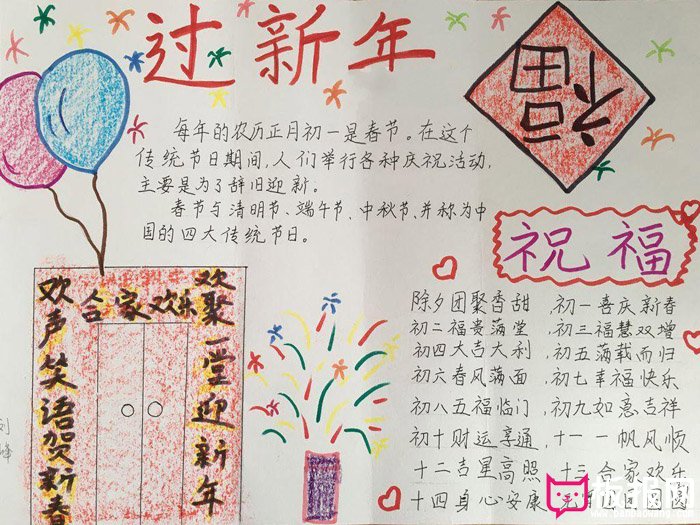 过新年
福
每年的农历正月初一是春节。在这个
传统节日期间,人们举行各种庆祝活动,
主要是为了辞旧迎新。
春节与清明节、端午节、中秋节、并称为中
国的四大传统节日。
祝福
除夕团聚香甜,初一喜庆新春
初二福贵满堂,初三福慧双增
初四大吉大利,初五满载而归
初六春风满面,初七幸福快乐
初八五福临门,初九如意吉祥
初十财运亨通,十一一帆风顺
十二吉星高照,十三合家欢乐
十四身心安康
合家欢乐
欢声笑语贺新春
欢聚一堂迎新年
刘
板报网
www.banbaowang.com